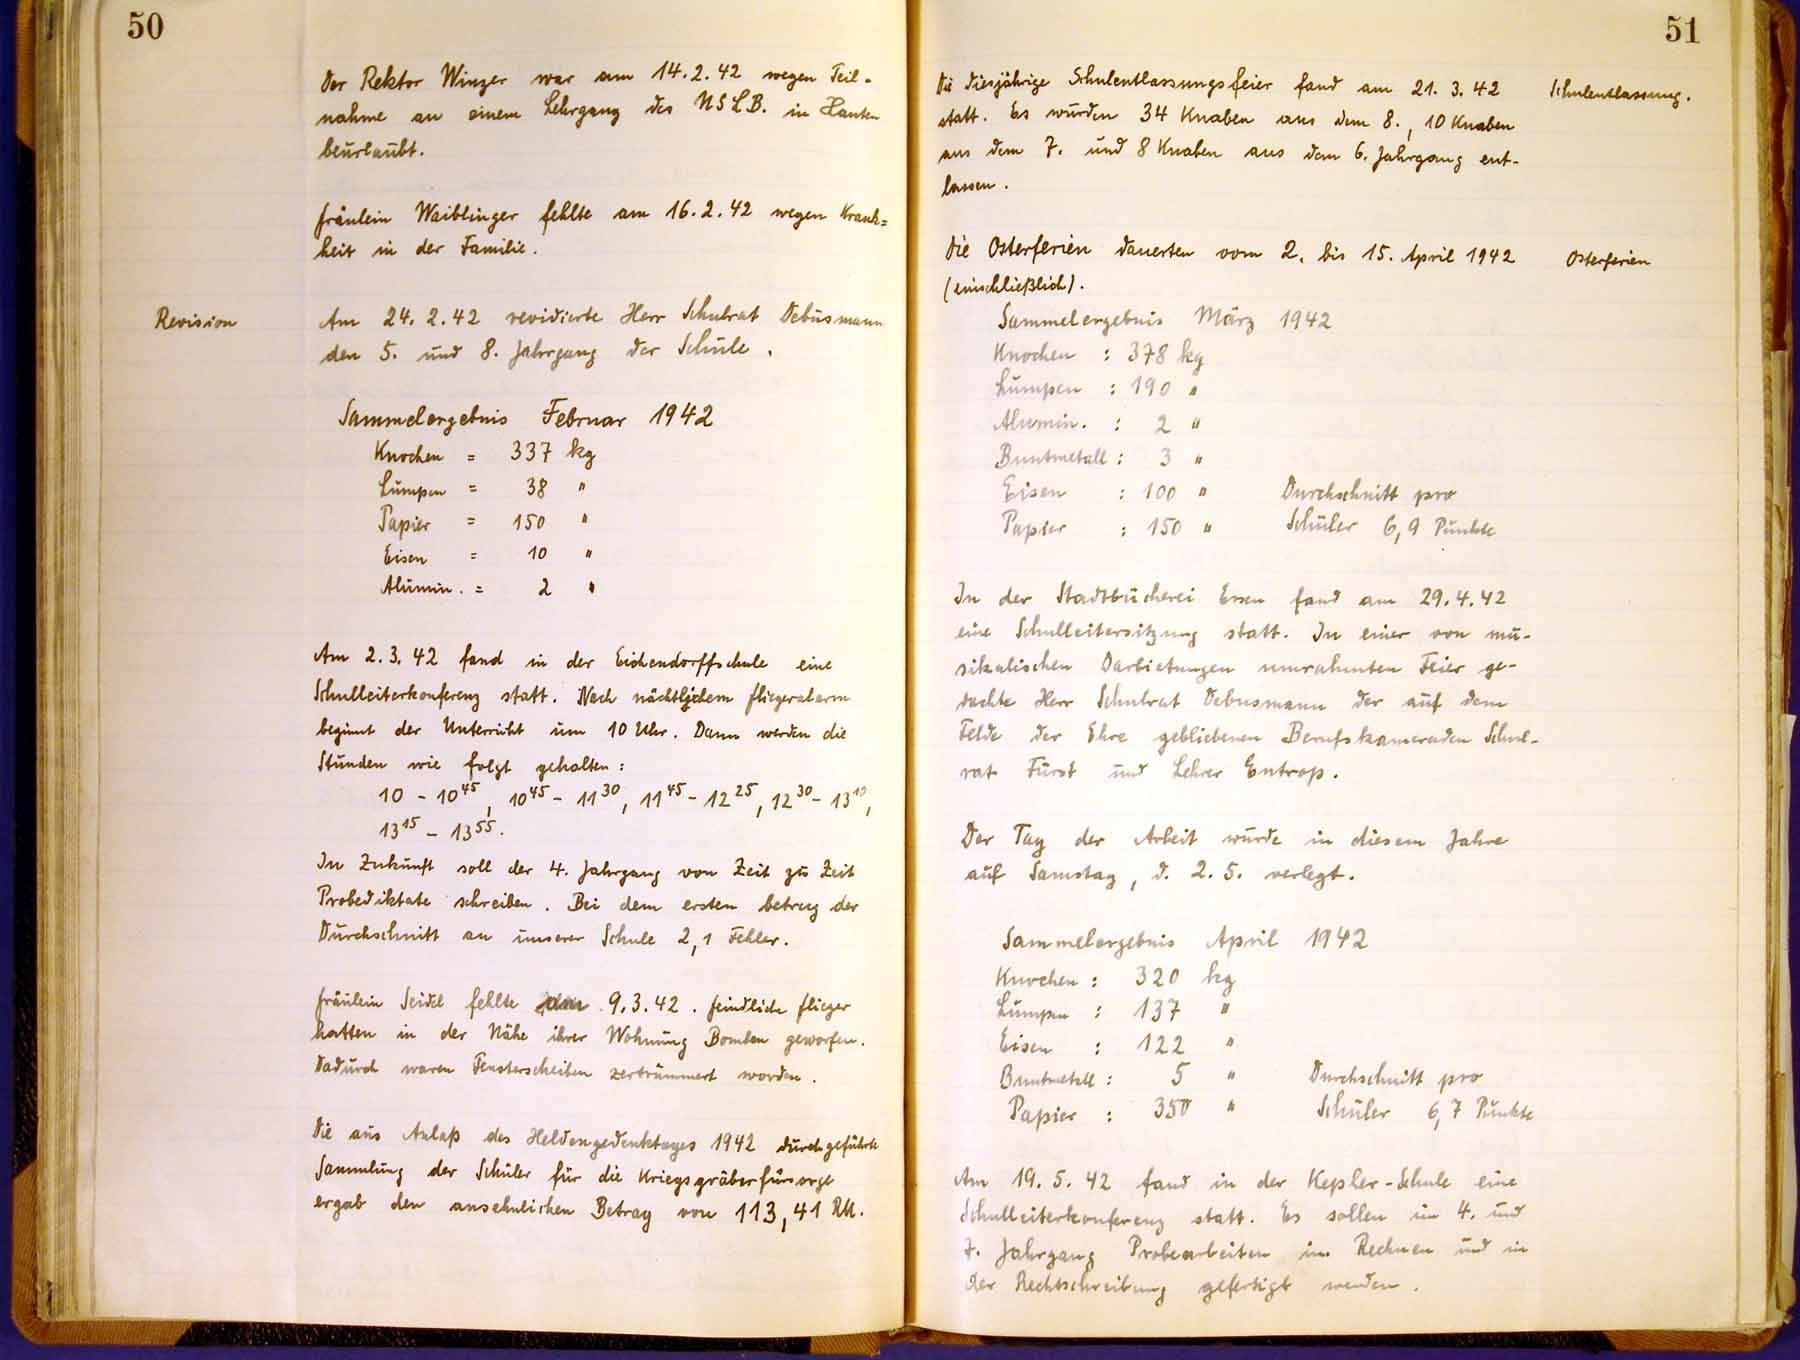 50
Der Rektor Winzer war am 14.2.42 wegen Teil-
nahme an einem Lehrgang des NSLB. in Xanten
beurlaubt.
Fräulein Waiblinger fehlte am 16.2.42 wegen Krank=
heit in der Familie.
Revision
Am 24.2.42 revidierte Herr Schulrat Debusmann
den 5. und 8. Jahrgang der Schule.
Sammelergebnis Februar 1942
Knochen = 337 kg
Lumpen = 38 "
Papier = 150 "
Eisen = 10 "
Alumin. = 2 "
Am 2.3.42 fand in der Eichendorffschule eine
Schulleiterkonferenz statt. Nach nächtlichem Fliegeralarm
beginnt der Unterricht um 10 Uhr. Dann werden die
Stunden wie folgt gehalten:
10 - 10 45, 10 45 - 11 30, 11 45 - 12 25, 12 30 - 13 10,
13 15 - 13 55.
In Zukunft soll der 4. Jahrgang von Zeit zu Zeit
Probediktate schreiben. Bei dem ersten betrug der
Durchschnitt an unserer Schule 2,1 Fehler.
Fräulein Seidel fehlte am 9.3.42. Feindliche Flieger
hatten in der Nähe ihrer Wohnung Bomben geworfen.
Dadurch waren Fensterscheiben zertrümmert worden.
Die aus Anlaß des Heldengedenktages 1942 durchgeführte
Sammlung der Schüler für die Kriegsgräberfürsorge
ergab den ansehnlichen Betrag von 113,41 RM.
51
Die diesjährige Schulentlassungsfeier fand am 21.3.42
Schulentlassung.
statt. Es wurden 34 Knaben aus dem 8., 10 Knaben
aus dem 7. und 8 Knaben aus dem 6. Jahrgang ent-
lassen.
Die Osterferien dauerten vom 2. bis 15. April 1942
Osterferien
(einschließlich).
Sammelergebnis März 1942
Knochen : 378 kg
Lumpen : 190 "
Alumin. : 2 "
Buntmetall : 3 "
Eisen : 100 " Durchschnitt pro
Papier : 150 " Schüler 6,9 Punkte
In der Stadtbücherei Essen fand am 29.4.42
eine Schulleitersitzung statt. In einer von mu-
sikalischen Darbietungen umrahmten Feier ge-
dachte Herr Schulrat Debusmann der auf dem
Felde der Ehre gebliebenen Berufskameraden Schul-
rat Fürst und Lehrer Entrop.
Der Tag der Arbeit wurde in diesem Jahre
auf Samstag, d. 2.5. verlegt.
Sammelergebnis April 1942
Knochen : 320 kg
Lumpen : 137 "
Eisen : 122 "
Buntmetall : 5 " Durchschnitt pro
Papier : 350 " Schüler 6,7 Punkte
Am 19.5.42 fand in der Kepler-Schule eine
Schulleiterkonferenz statt. Es sollen im 4. und
7. Jahrgang Probearbeiten im Rechnen und in
der Rechtschreibung gefertigt werden.